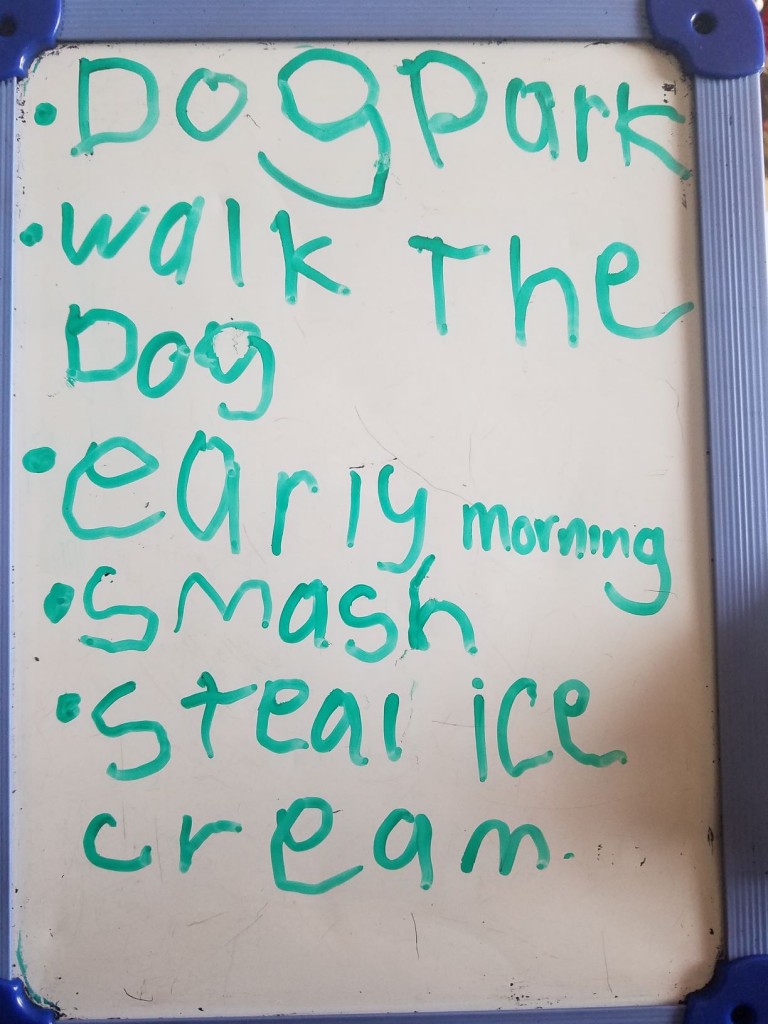 • Dog Park
• walk The
Dog
• early morning
• smash
• steal ice
cream.